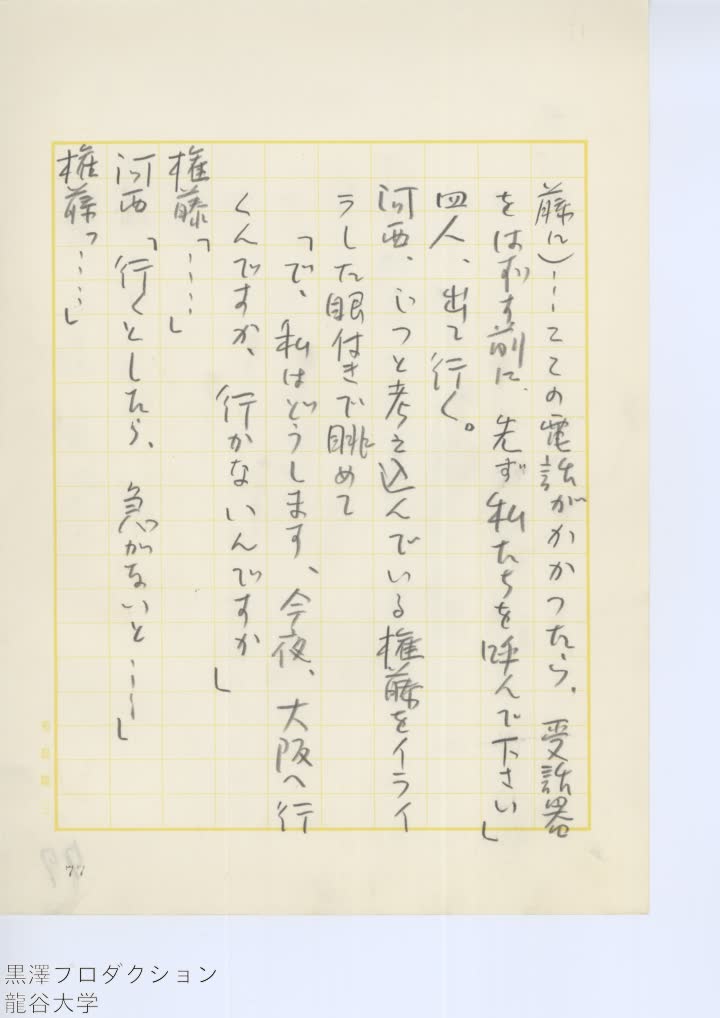 藤に)……ここの電話がかかったら、受話器
をはずす前に、先ず私たちを呼んで下さい」
四人、出て行く。
河西、じっと考え込んでいる権藤をイライ
ラした眼付きで眺めて
「で、私はどうします、今夜、大阪へ行
くんですか、行かないんですか」
権藤「……」
河西「行くとしたら、急がないと……」
権藤「……」
77
黒澤プロダクション
龍谷大学